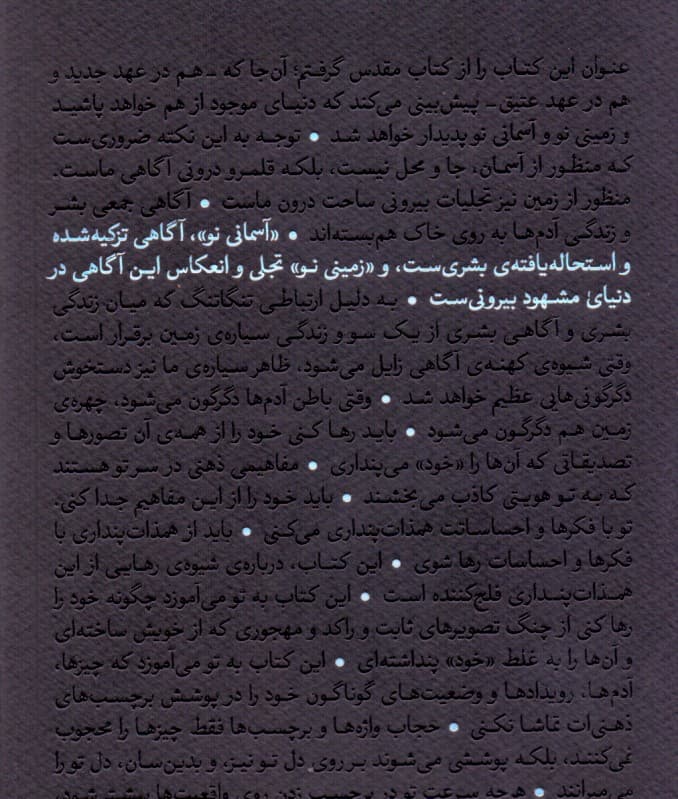 عنوان این کتاب را از کتاب مقدس گرفتم؛ آن‌جا که ـ هم در عهد جدید و
هم در عهد عتیق ـ پیش‌بینی می‌کند که دنیای موجود از هم خواهد پاشید
و زمینی نو و آسمانی نو پدیدار خواهد شد • توجه به این نکته ضروری‌ست
که منظور از آسمان، جا و محل نیست، بلکه قلمرو درونی آگاهی ماست.
منظور از زمین نیز تجلیات بیرونی ساحت درون ماست • آگاهی جمعی بشر
و زندگی آدم‌ها به روی خاک هم‌بسته‌اند • «آسمانی نو»، آگاهی تزکیه‌شده
و استحاله‌یافته‌ی بشری‌ست، و «زمینی نو» تجلی و انعکاس این آگاهی در
دنیای مشهود بیرونی‌ست • به دلیل ارتباطی تنگاتنگ که میان زندگی
بشری و آگاهی بشری از یک سو و زندگی سیاره‌ی زمین برقرار است،
وقتی شیوه‌ی کهنه‌ی آگاهی زایل می‌شود، ظاهر سیاره‌ی ما نیز دستخوش
دگرگونی‌هایی عظیم خواهد شد • وقتی باطن آدم‌ها دگرگون می‌شود، چهره‌ی
زمین هم دگرگون می‌شود • باید رها کنی خود را از همه‌ی آن تصورها و
تصدیقاتی که آن‌ها را «خود» می‌پنداری • مفاهیمی ذهنی در سر تو هستند
که به تو هویتی کاذب می‌بخشند • باید خود را از این مفاهیم جدا کنی.
تو با فکرها و احساساتت همذات‌پنداری می‌کنی • باید از همذات‌پنداری با
فکرها و احساسات رها شوی • این کتاب، درباره‌ی شیوه‌ی رهایی از این
همذات‌پنداری فلج‌کننده است • این کتاب به تو می‌آموزد چگونه خود را
رها کنی از چنگ تصویرهای ثابت و راکد و مهجوری که از خویش ساخته‌ای
و آن‌ها را به غلط «خود» پنداشته‌ای • این کتاب به تو می‌آموزد که چیزها،
آدم‌ها، رویدادها و وضعیت‌های گوناگون خود را در پوشش برچسب‌های
ذهنی‌ات تماشا نکنی • حجاب واژه‌ها و برچسب‌ها فقط چیزها را محجوب
نمی‌کنند، بلکه پوششی می‌شوند بر روی دل تو نیز، و بدین‌سان، دل تو را
می‌میرانند • هرچه سرعت تو در برچسب زدن روی واقعیت‌ها بیشتر شود،